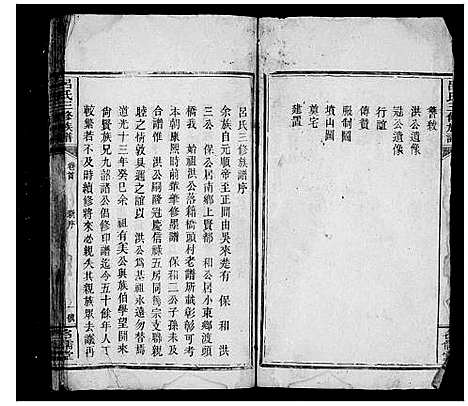 誓教
洪公遺像
冠公遺像
行誼
優費
服制圖
墳山圖
奠宅
建置
呂氏三修族譜序
余族自元順帝至正間由吳來楚有 保 和 洪
三公 保公居南鄉上賢都 和公居小東鄉渡頭
橋我 始祖洪公落籍橋頭村老譜所載彰彰可考
本朝康熙時前輩華修墨譜 保和二公子孫未及
合譜惟 洪公嗣冠慶信祿五房同傳宗支聯親
睦之情敦具邇之誼以 洪公為基祖永遠勿替焉
道光十三年癸巳余 祖有美公與族伯學望開來
尚賢族兄九韶諸公倡修印譜迄今五十餘年人丁
較繁若不及時續修將來必親失其親眾去議再
呂氏三修族譜
卷首
新序